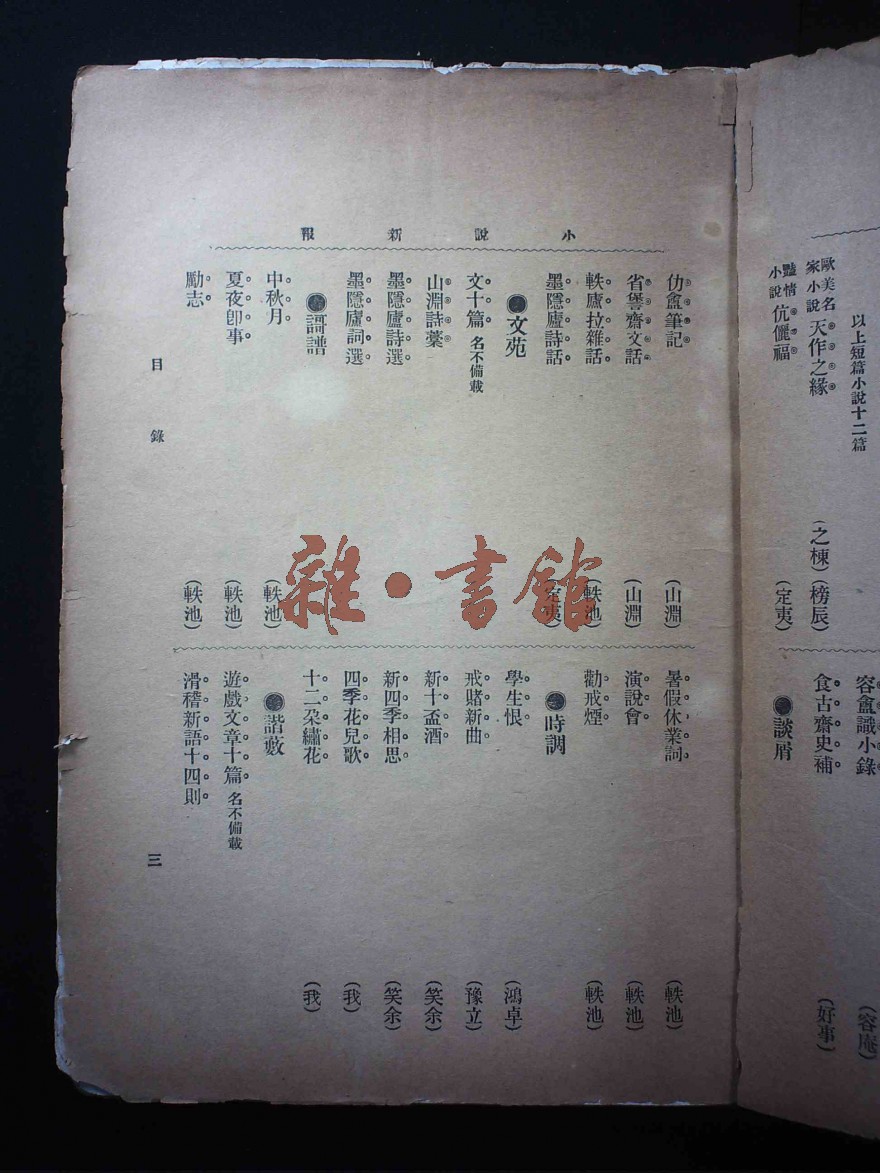 以上短篇小說十二篇
歐美名家小說 天作之緣 (之棟)(榜辰)
豔情小說 伉儷福 (定夷)
容盦識小錄 (容庵)
食古齋史補 (好事)
●談屑
小說新報
仂盦筆記 (山淵)
省諐齋文話 (山淵)
軼廬拉雜話 (軼池)
墨隱廬詩話 (定夷)
●文苑
文十篇 名不備載
山淵詩藳
墨隱廬詩選
墨隱廬詞選
●謌譜
中秋月 (軼池)
夏夜卽事 (軼池)
勵志 (軼池)
暑假休業詞 (軼池)
演說會 (軼池)
勸戒煙 (軼池)
●時調
學生恨 (鴻卓)
戒賭新曲 (豫立)
新十盃酒 (笑余)
新四季相思 (笑余)
四季花兒歌 (我)
十二朶繡花 (我)
●諧藪
遊戲文章十篇 名不備載
滑稽新語十四則
目錄
三
雜·書館